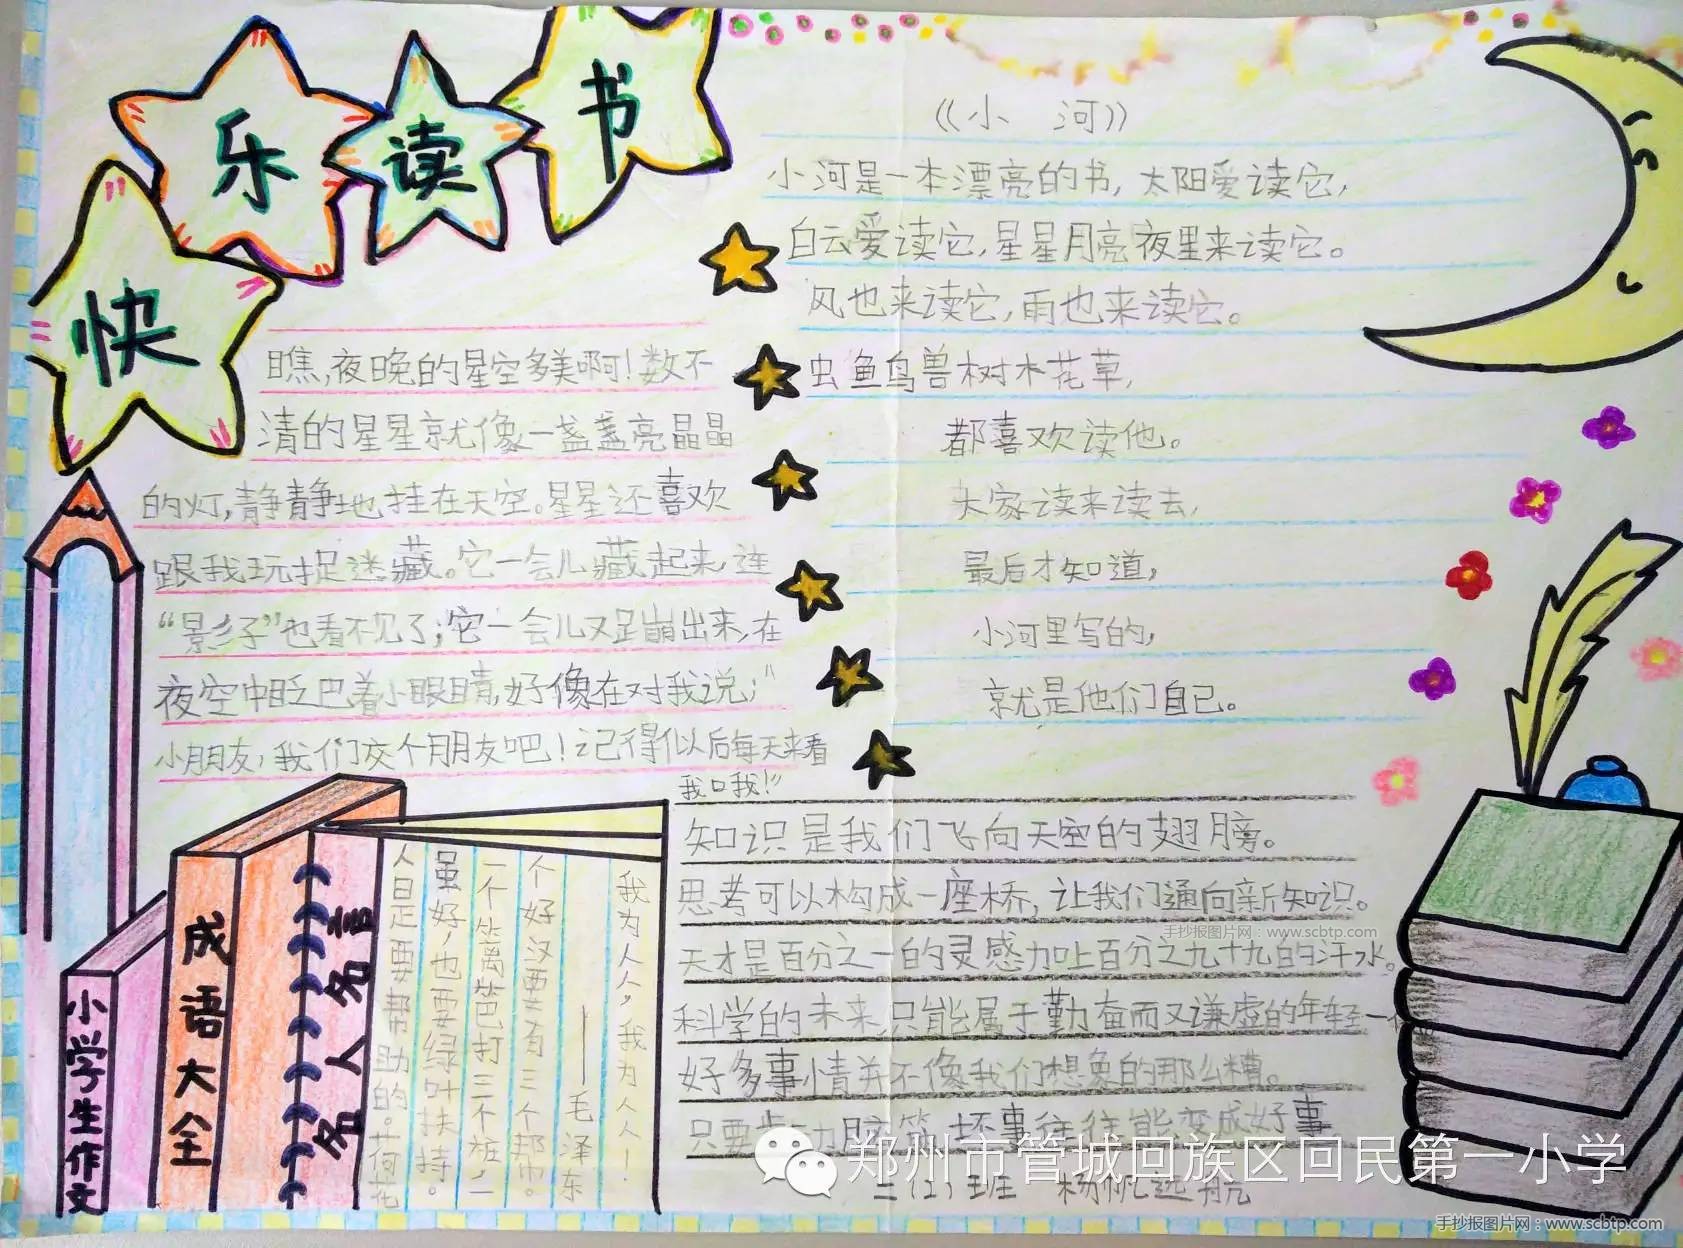 快乐读书
《小 河》
小河是一本漂亮的书，太阳爱读它，
白云爱读它，星星月亮夜里来读它。
风也来读它，雨也来读它。
虫鱼鸟兽树木花草，
都喜欢读他。
大家读来读去，
最后才知道，
小河里写的，
就是他们自己。
瞧，夜晚的星空多美啊！数不
清的星星就像一盏盏亮晶晶
的灯，静静地挂在天空。星星还喜欢
跟我玩捉迷藏。它一会儿藏起来，连
“影子”也看不见了；它一会儿又蹦出来，在
夜空中眨巴着小眼睛，好像在对我说：“
小朋友，我们交个朋友吧！记得以后每天来看
我口我！”
知识是我们飞向天空的翅膀。
思考可以构成一座桥，让我们通向新知识。
天才是百分之一的灵感加上百分之九十九的汗水。
科学的未来，只能属于勤奋而又谦虚的年轻一
好多事情并不像我们想象的那么糟。
只要 坏事往往能变成好事
三（1）班
小学生作文
成语大全
名人名言
我为人人，我为人人！
——毛泽东
个好汉要有三个帮巾。
一个篱笆打三个桩，一
虽好，也要绿叶扶持。
人是要帮助的。荷花
手抄报图片网：www.scbtp.com
郑州市管城回族区回民第一小学
手抄报图片网：www.scbtp.com